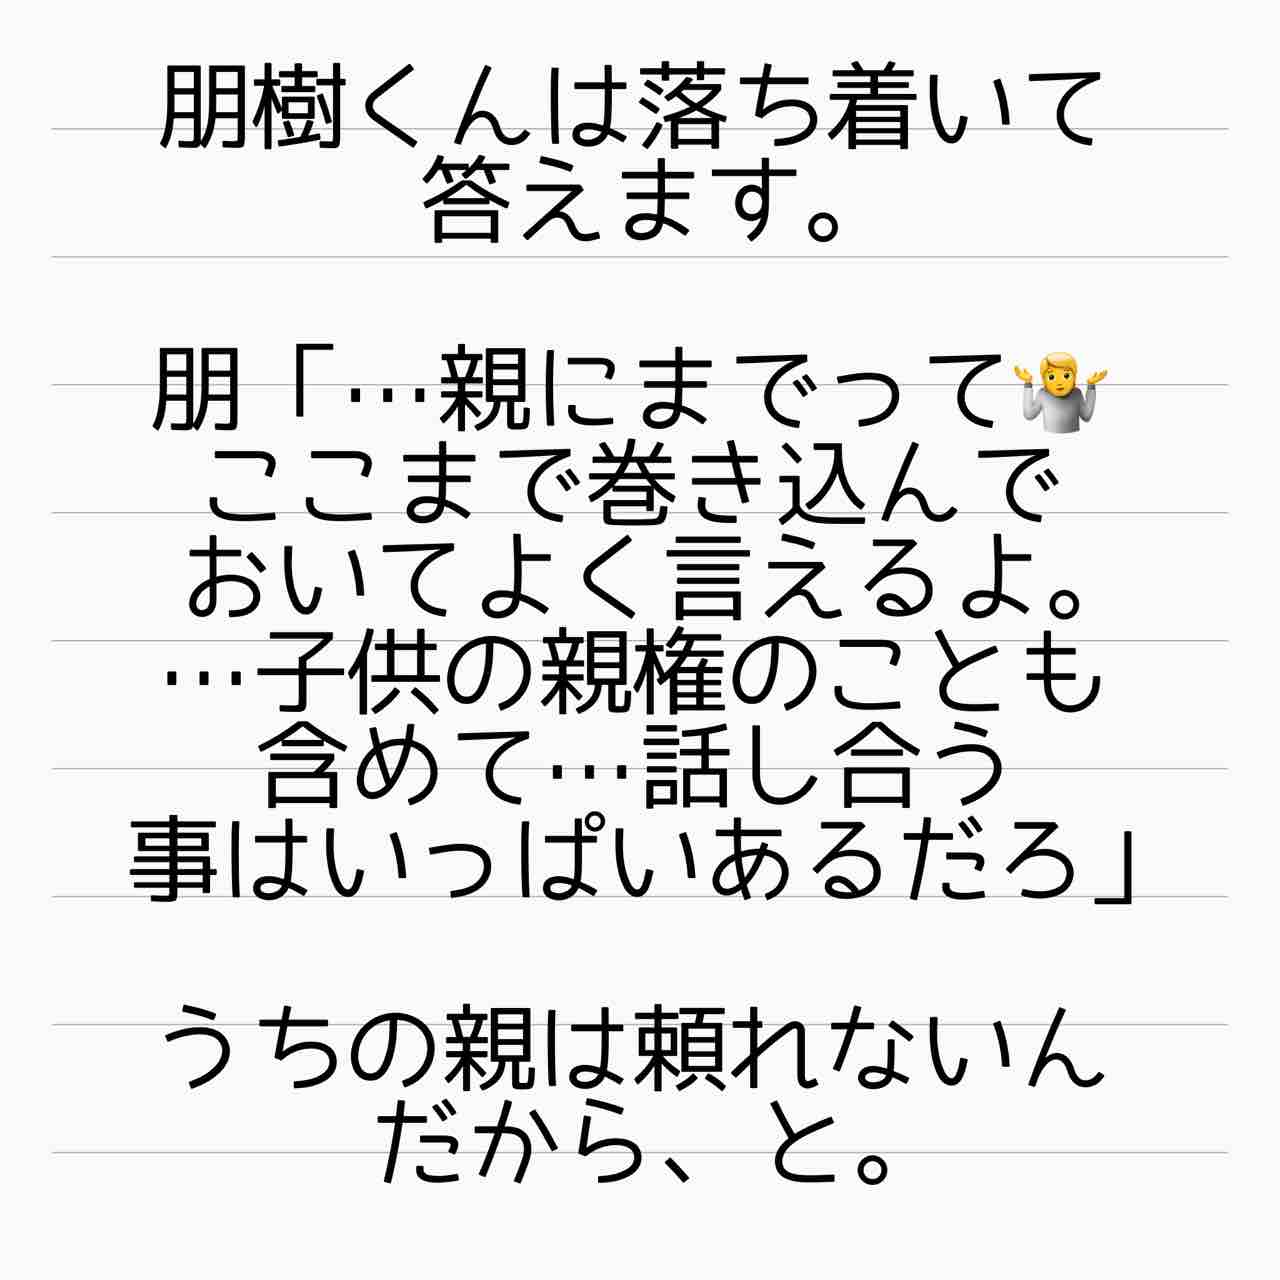 朋樹くんは落ち着いて
答えます。
朋「…親にまでって🤷
ここまで巻き込んで
おいてよく言えるよ。
…子供の親権のことも
含めて…話し合う
事はいっぱいあるだろ」
うちの親は頼れないん
だから、と。